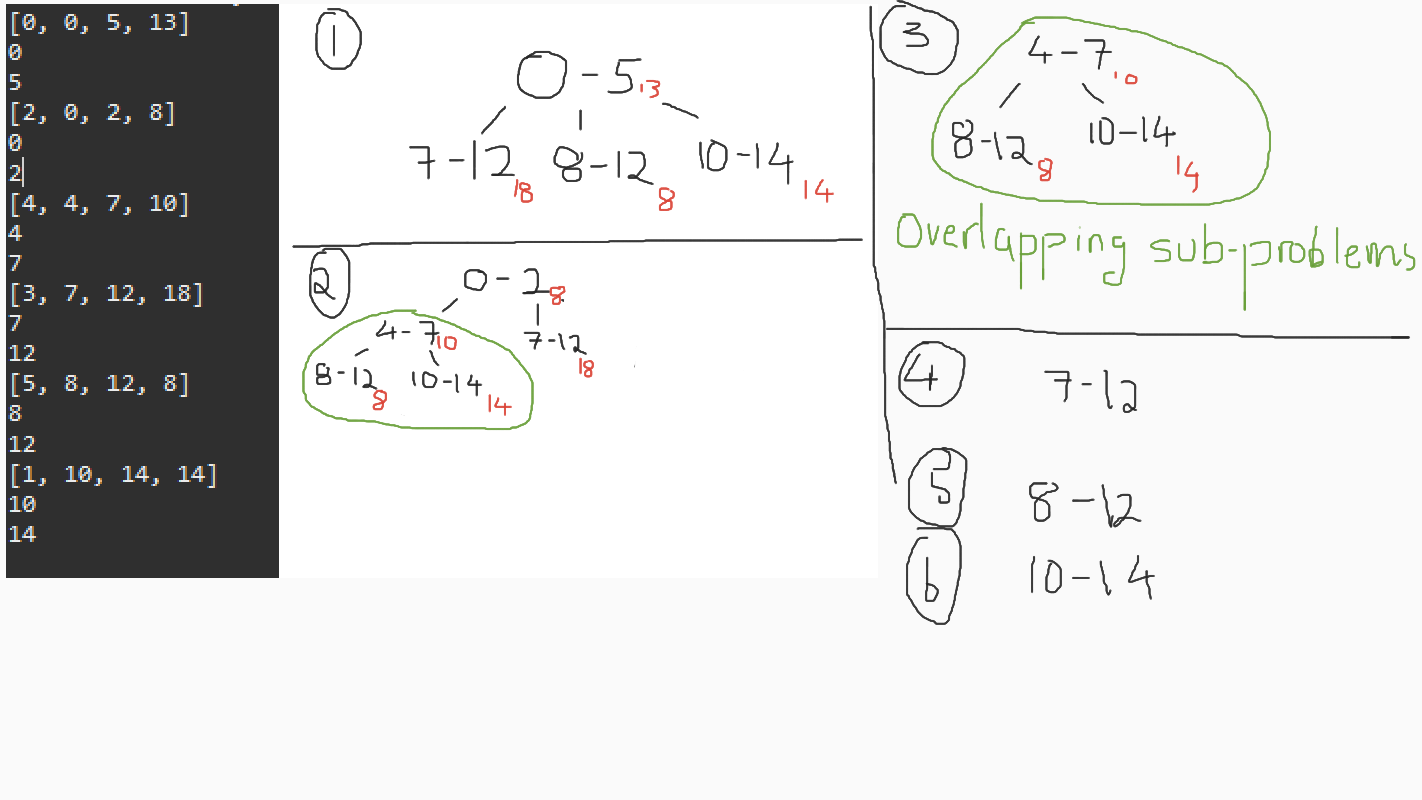 [0, 0, 5, 13]
0
5
[2, 0, 2, 8]
0
2
[4, 4, 7, 10]
4
7
[3, 7, 12, 18]
7
12
[5, 8, 12, 8]
8
12
[1, 10, 14, 14]
10
14
1
0 - 5 13
7 - 12 18 8 - 12 8 10 - 14 14
2
0 - 2 8
4 - 7 10 7 - 12 18
8 - 12 8 10 - 14 14
3
4 - 7 10
8 - 12 8 10 - 14 14
Overlapping sub-problems
4 7 - 12
5 8 - 12
6 10 - 14